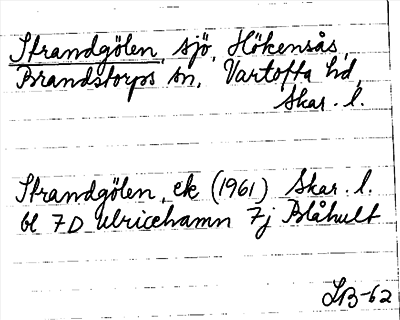 Strandgölen, sjö, Hökensås,
Brandstorps sn, Vartofta hd,
Skar. l.
Strandgölen, ek (1961) Skar. l.
bl 7D Ulricehamn 7j Blåhult
LB-62